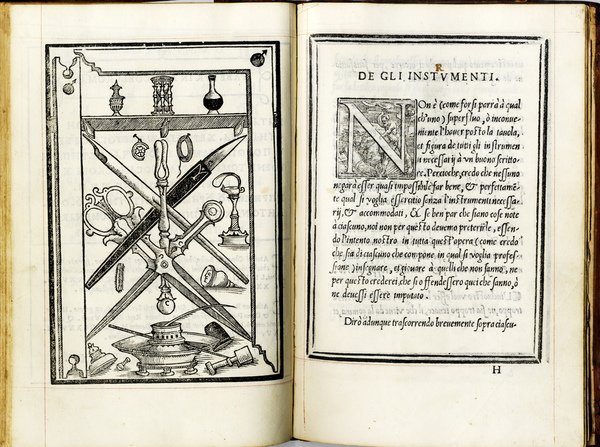 R
DE GLI INSTVMENTI.
NOn è (come forsi parrà à qual
ch'uno) superfluo, ò inconue-
niente l'hauer posto la tauola,
et figura de tutti gli instrumen
ti necessarij à un buono scritto-
re. Percioche, credo che nessuno
negarà esser quasi impossibile far bene, & perfettamē-
te qual si voglia essercitio senza l'instrumenti necessa-
rij, & accommodati, & se ben par che siano cose note
à ciascuno, noi non per questo deuemo preterirle, essen-
do l'intento nostro in tutta quest'opera (come credo
che sia di ciascuno che compone, in qual si voglia profes-
sione) insegnare, et giouare à quelli che non sanno, ne
per questo crederei, che si offendessero qui che sanno, ò
ne deuessi essere imputato.
Dirò adunque trascorrendo breuemente sopra ciascu-
H